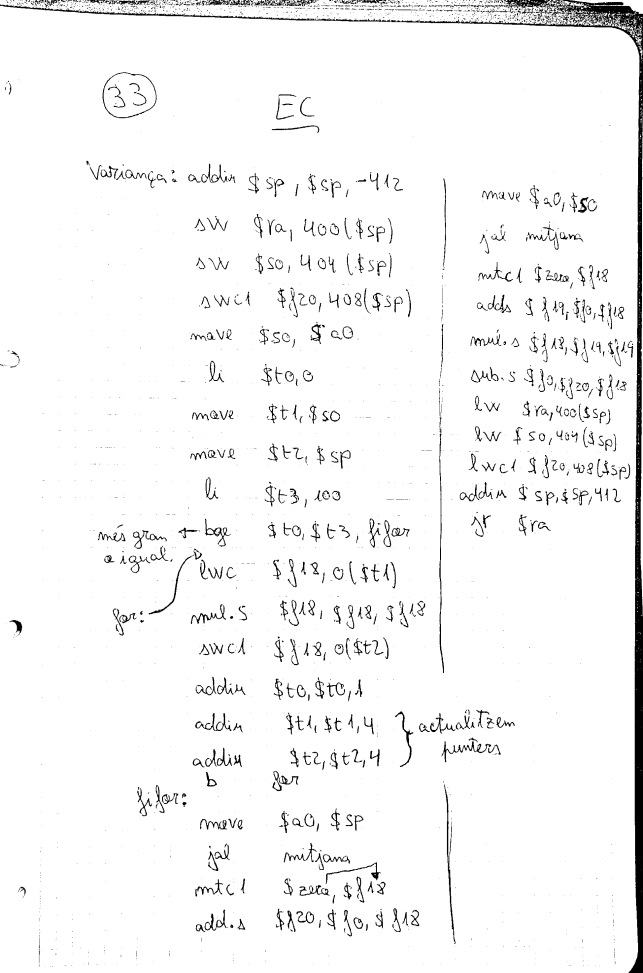 33
EC
Variança: addiu $sp, $sp, -412
sw $ra, 400($sp)
sw $s0, 404($sp)
swc1 $f20, 408($sp)
move $s0, $a0
li $t0, 0
move $t1, $s0
move $t2, $sp
li $t3, 100
més gran o igual. ← bge $t0, $t3, fifor
lwc $f18, 0($t1)
for: mul.s $f18, $f18, $f18
swc1 $f18, 0($t2)
addiu $t0, $t0, 1
addiu $t1, $t1, 4
addiu $t2, $t2, 4
} actualitzem punters
b for
fifor:
move $a0, $sp
jal mitjana
mtc1 $zero, $f18
add.s $f20, $f0, $f18
move $a0, $s0
jal mitjana
mtc1 $zero, $f18
adds $f19, $f0, $f18
mul.s $f18, $f19, $f19
sub.s $f0, $f20, $f18
lw $ra, 400($sp)
lw $s0, 404($sp)
lwc1 $f20, 408($sp)
addiu $sp, $sp, 412
jr $ra